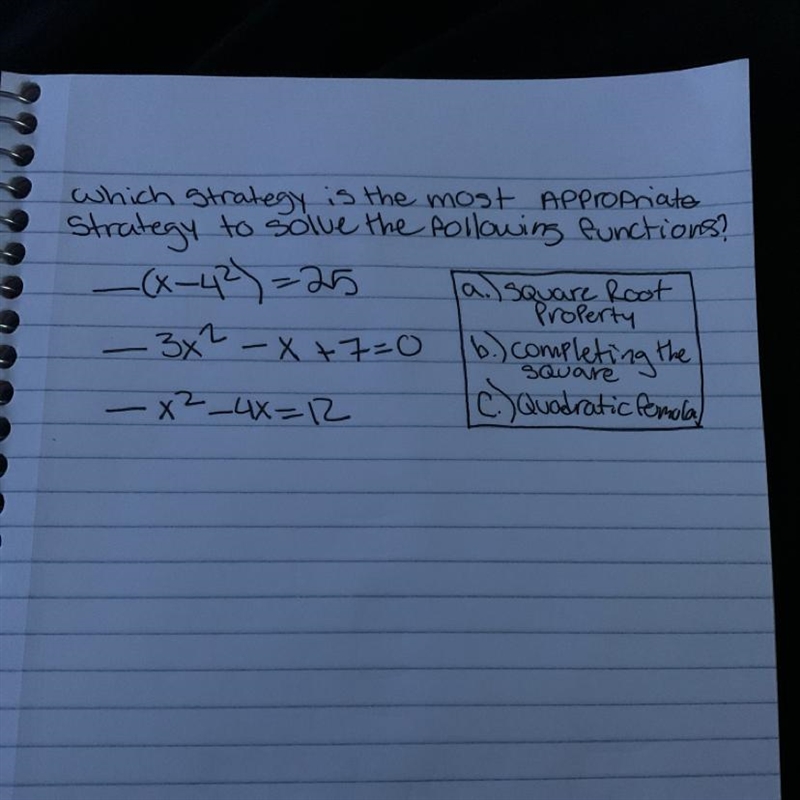 which strategy is the most Appropriate
strategy to solve the following functions?
—(x-4²)=25
— 3x² - x +7=0
— x²-4x=12
a.) square Root
Property
b.) completing the
square
c.) Quadratic femola